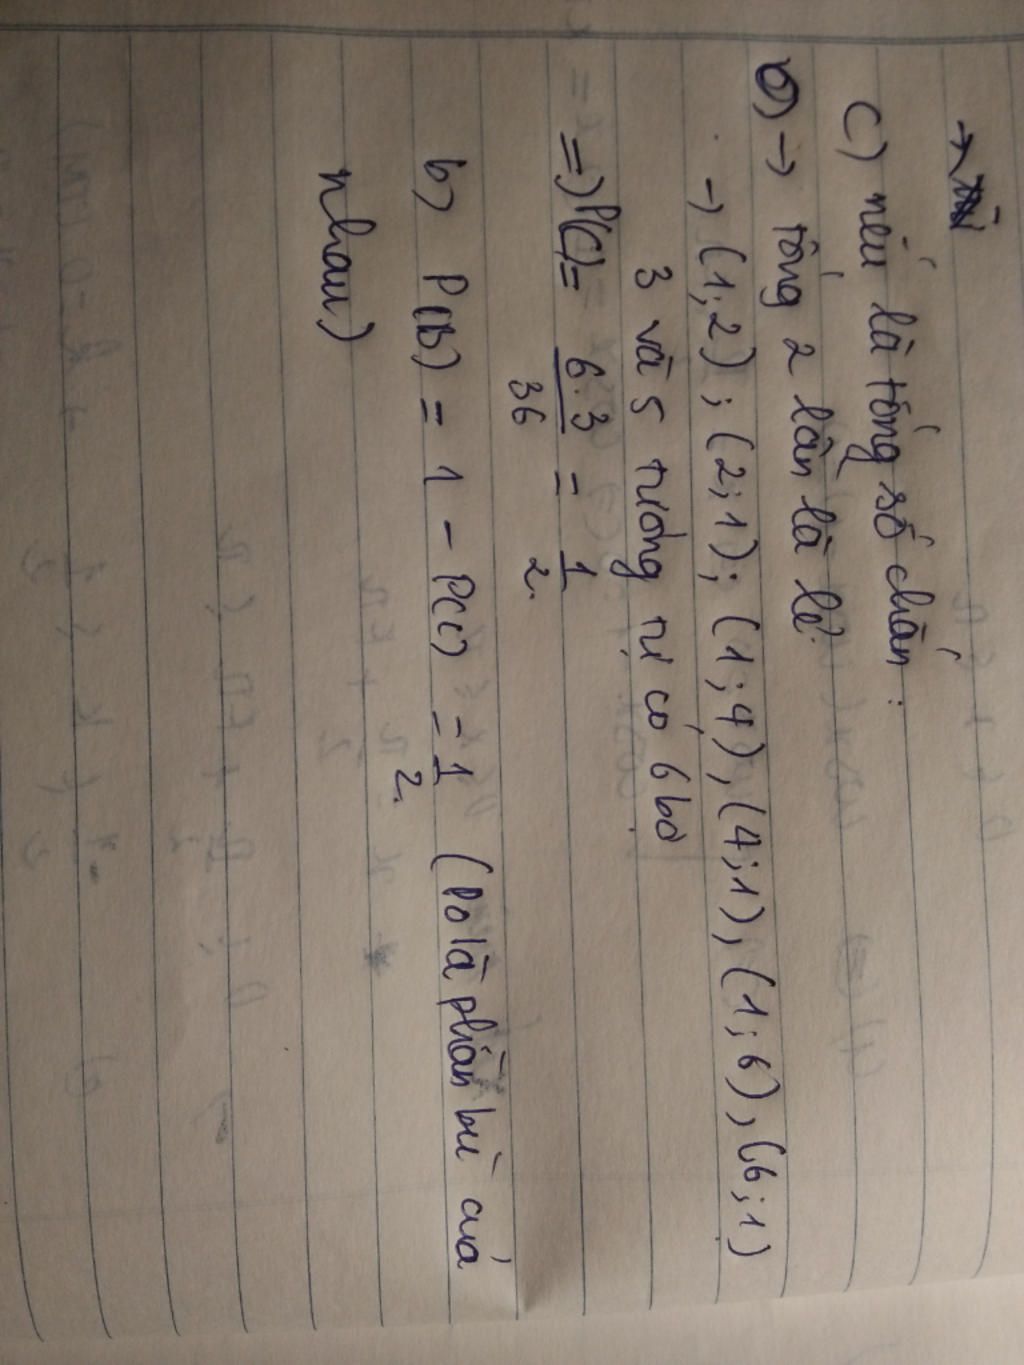 c) nếu là tổng số chẵn :
b) → tổng 2 lần là lẻ.
→ (1;2); (2;1); (1;4), (4;1), (1;6), (6;1)
3 và 5 tương tự có 6 bộ
=> P(C) = 6.3/36 = 1/2.
b) P(B) = 1 - P(C) = 1/2. (Do là phần bù của
nhau)